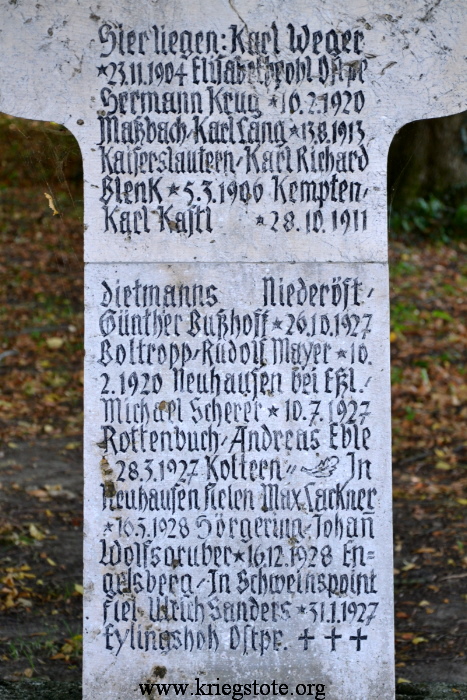 Hier liegen: Karl Weger
*23.11.1904 Elisabethpohl Ostpr
Hermann Krug *16.2.1920
Maßbach, Karl Lang *13.8.1913
Kaiserslautern, Karl Richard
Blenk *5.3.1906 Kempten,
Karl Kastl *28.10.1911
Dietmanns Niederöst,
Günther Bußhoff *26.10.1927
Boltropp, Rudolf Mayer *10.
2.1920 Neuhausen bei Eßl.,
Michael Scherer *10.7.1927
Rottenbuch, Andreas Eble
*28.3.1927 Kottern, In
Neuhausen fielen Max Lackner
*16.5.1928 Sörgering, Johan̄
Wolfsgruber *16.12.1928 En=
gelsberg, In Schweinspoint
fiel Ulrich Sanders *31.1.1927
Eylingshöh Ostpr. +++
www.kriegstote.org